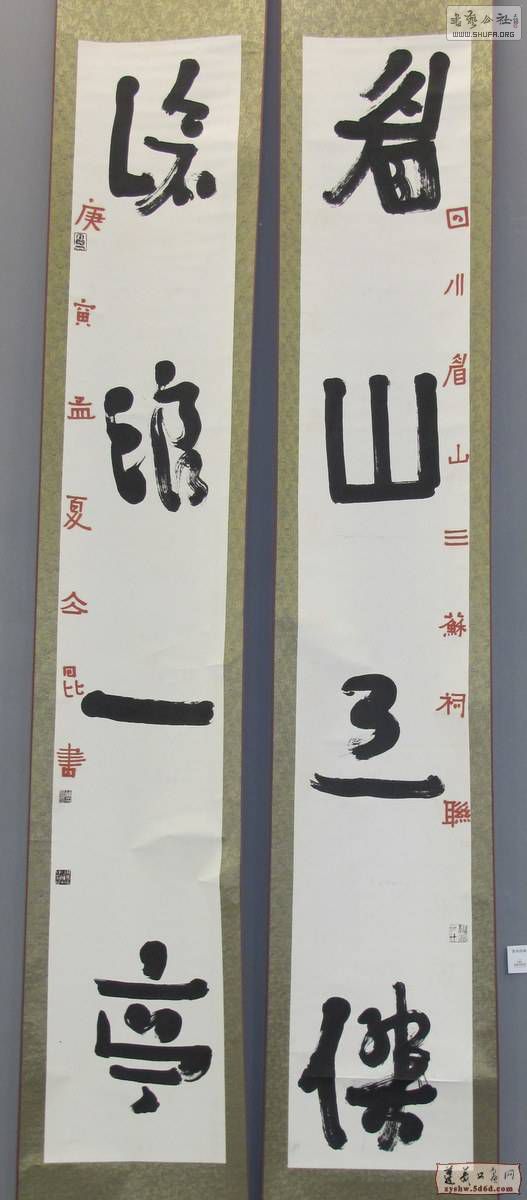 書藝公社
WWW.SHUFA.ORG
四川眉山三蘇祠聯
眉山三傑
滄浪一亭
庚寅孟夏仝昆書
zyshw.5d6d.com